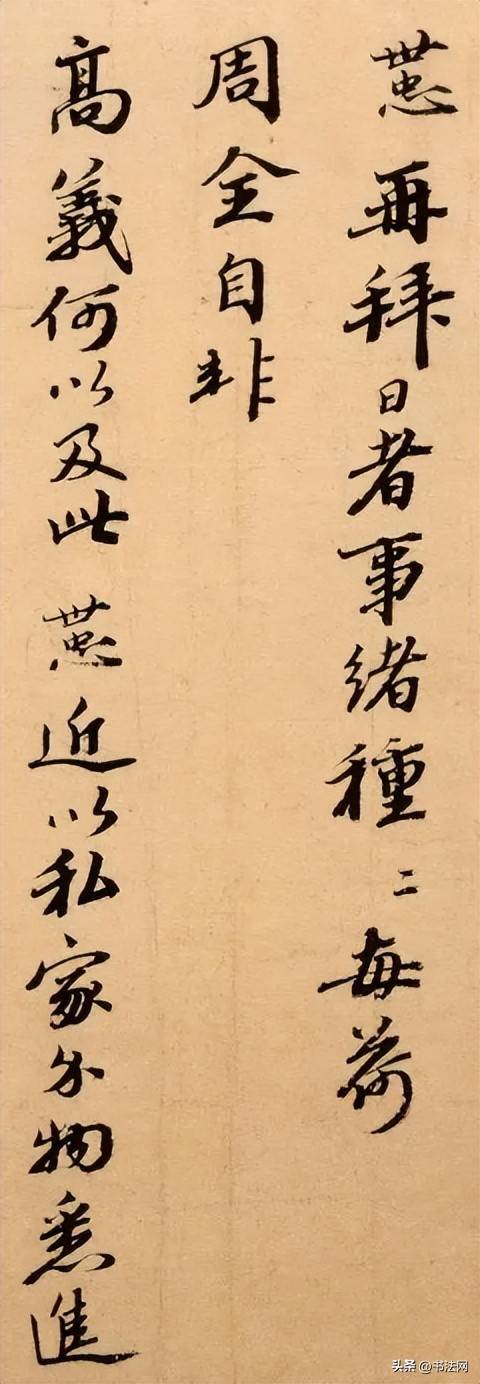 世忠再拜日者事緒種二每荷
周全自非
高義何以及此世忠近以私家分物悉進
头条 @书法网